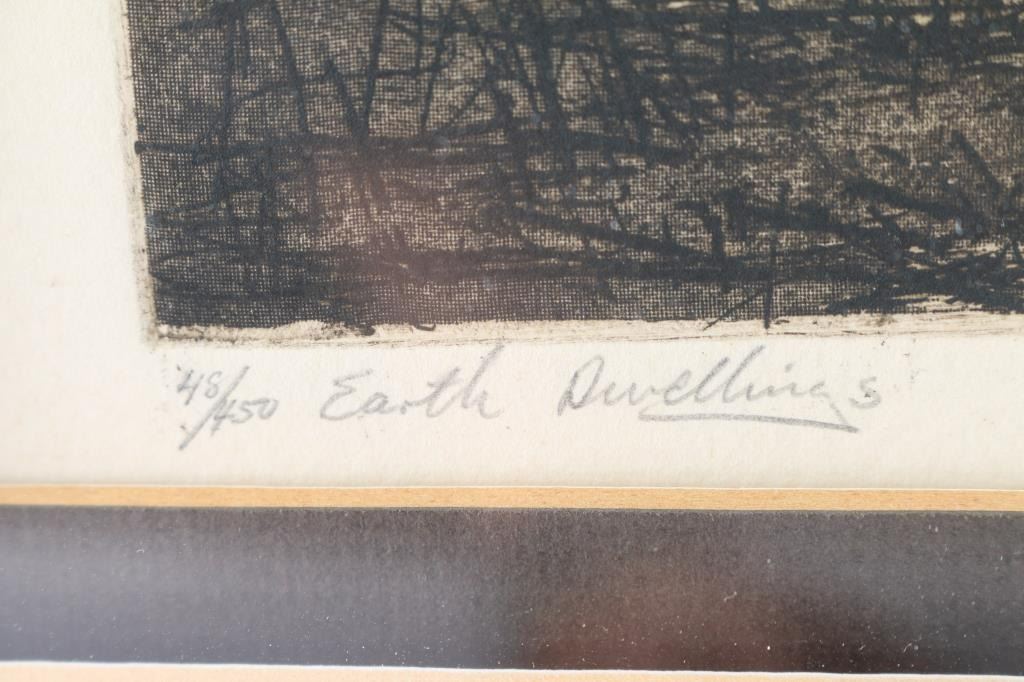 48/450 Earth Dwellings